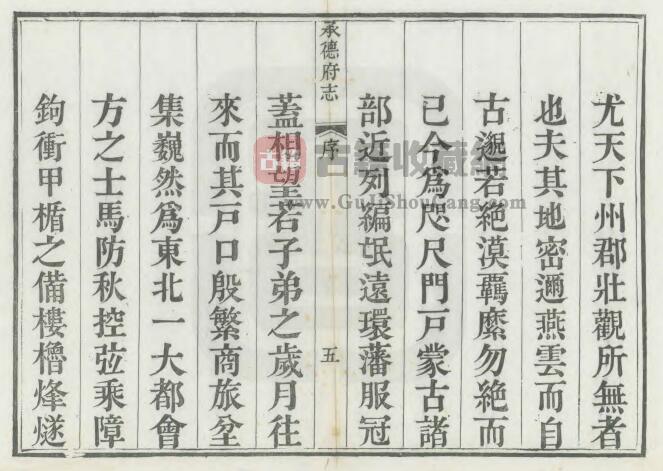 尤天下州郡壯觀所無者
也夫其地密邇燕雲而自
古邈若絶漠羈縻勿絶而
已今爲咫尺門戸蒙古諸
部近列編氓遠環藩服冠
承德府志
序
五
蓋相望若子弟之歲月往
來而其戸口殷繁商旅坌
集巍然爲東北一大都會
方之士馬防秋控弦乘障
鉤衝甲楯之備樓櫓烽燧
古籍收藏網
www.GuJiShouCang.com